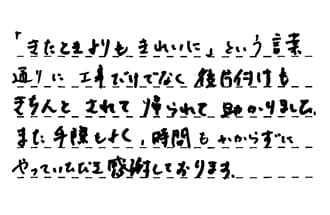 「きたときよりもきれいに」という言葉
通りに工事だけでなく後片付けも
きちんとされて帰られて助かりました。
また手際もよく、時間もかからずに
やっていただき感謝しております。